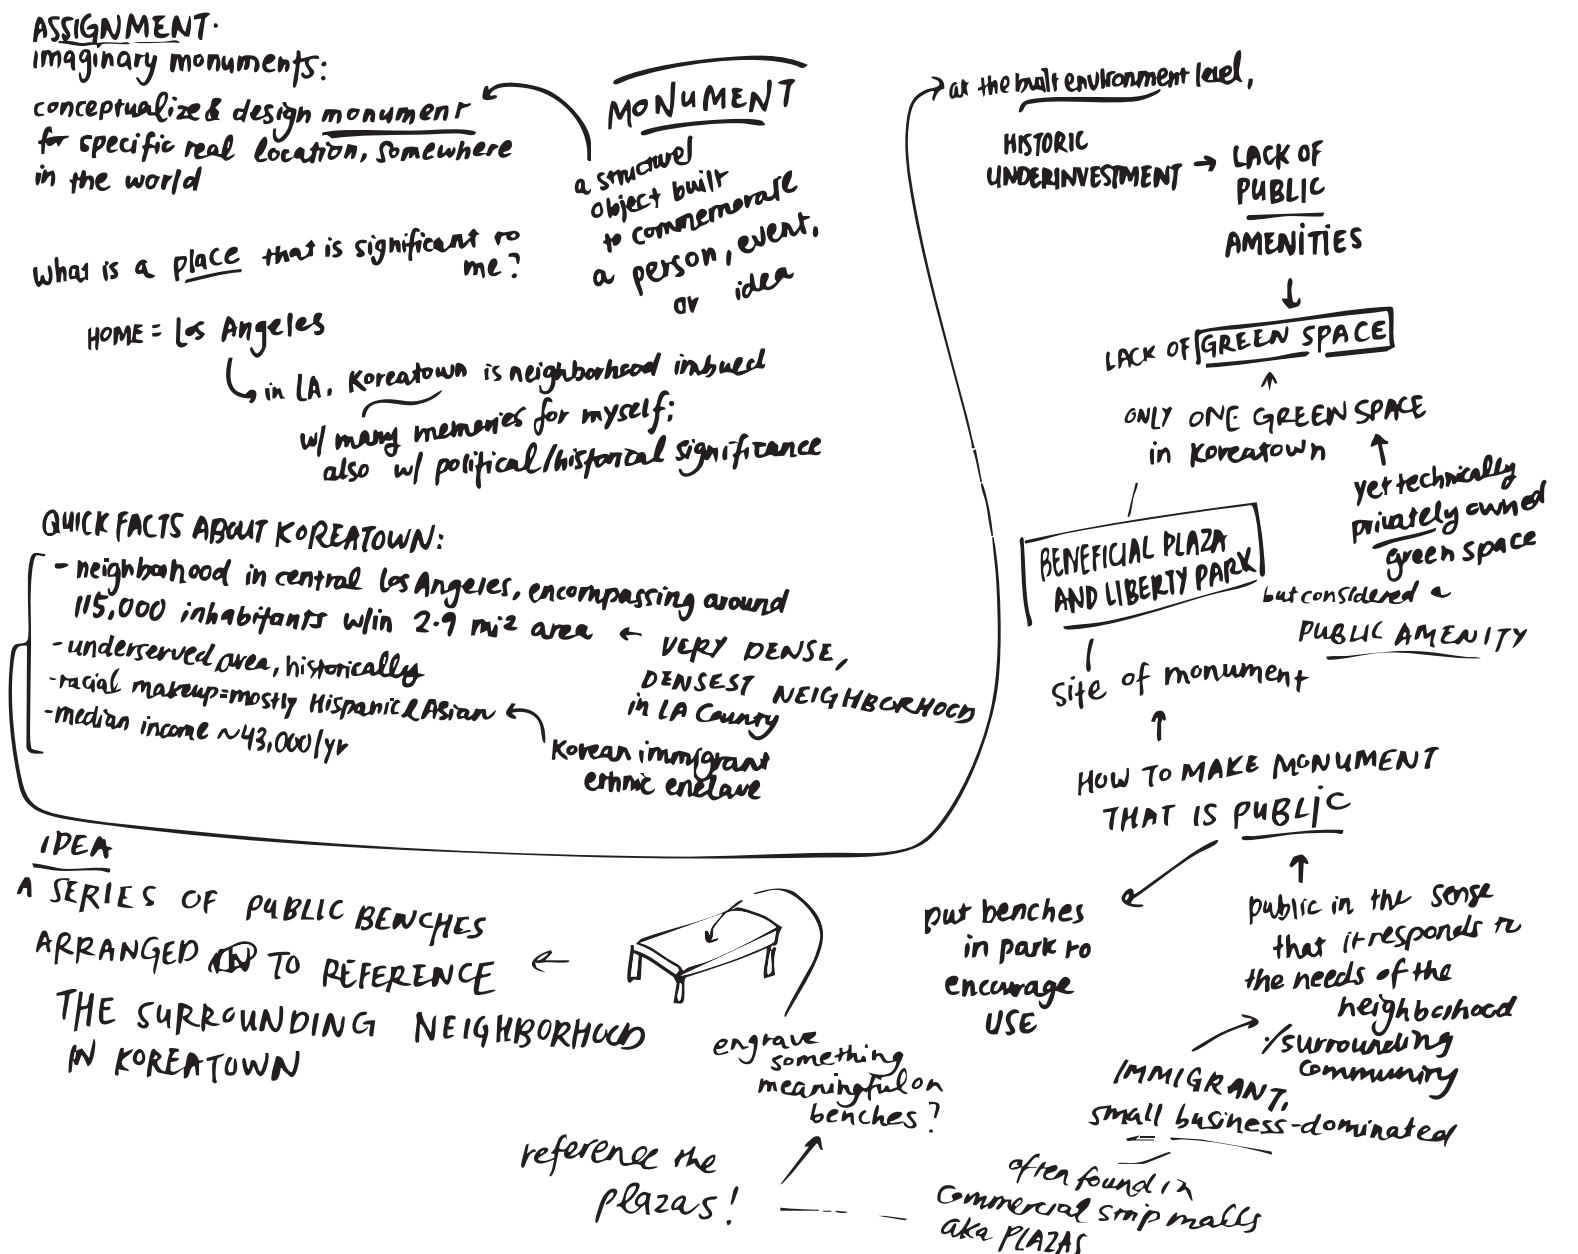 ASSIGNMENT.
imaginary monuments:
conceptualize & design monument
for specific real location, somewhere
in the world
MONUMENT
a structural
object built
to commemorate
a person, event,
or idea
what is a place that is significant to
me?
HOME = Los Angeles
in LA, Koreatown is neighborhood imbued
w/ many memories for myself;
also w/ political/historical significance
QUICK FACTS ABOUT KOREATOWN:
- neighborhood in central Los Angeles, encompassing around
115,000 inhabitants w/in 2.9 mi² area ←
VERY DENSE,
DENSEST NEIGHBORHOOD
in LA County
- underserved area, historically
- racial makeup = mostly Hispanic & Asian
Korean immigrant
ethnic enclave
- median income ~43,000/yr
at the built environment level,
HISTORIC
UNDERINVESTMENT →
LACK OF
PUBLIC
AMENITIES
LACK OF GREEN SPACE
ONLY ONE GREEN SPACE
in Koreatown
yet technically
privately owned
green space
but considered a
PUBLIC AMENITY
BENEFICIAL PLAZA
AND LIBERTY PARK
site of monument
HOW TO MAKE MONUMENT
THAT IS PUBLIC
put benches
in park to
encourage
USE
public in the sense
that it responds to
the needs of the
neighborhood
/surrounding
community
IMMIGRANT,
small business-dominated
often found in
commercial strip malls
aka PLAZAS
reference the
plazas!
engrave
something
meaningful on
benches?
IDEA
A SERIES OF PUBLIC BENCHES
ARRANGED TO REFERENCE
THE SURROUNDING NEIGHBORHOOD
IN KOREATOWN